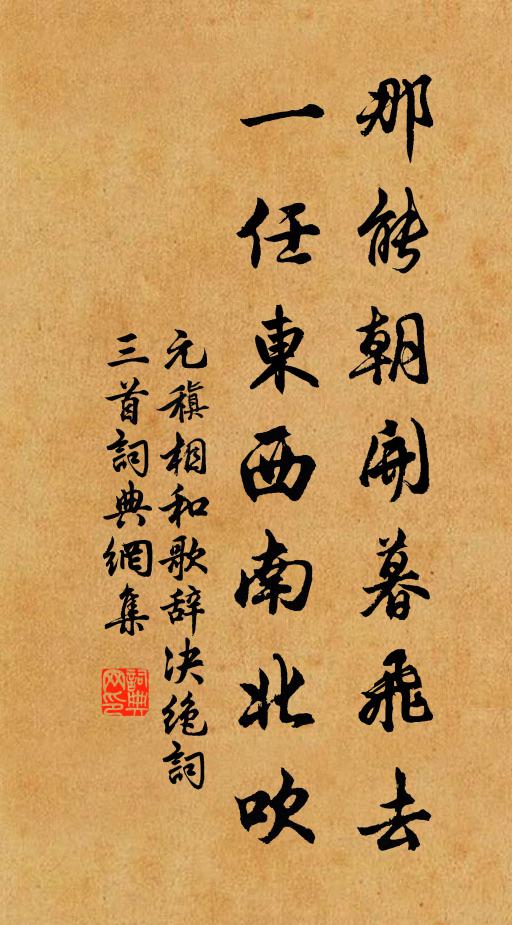 那能朝開暮飛去
一任東西南北吹
元稹相和歌辞决绝詞
三首詞典網集
詞典网印